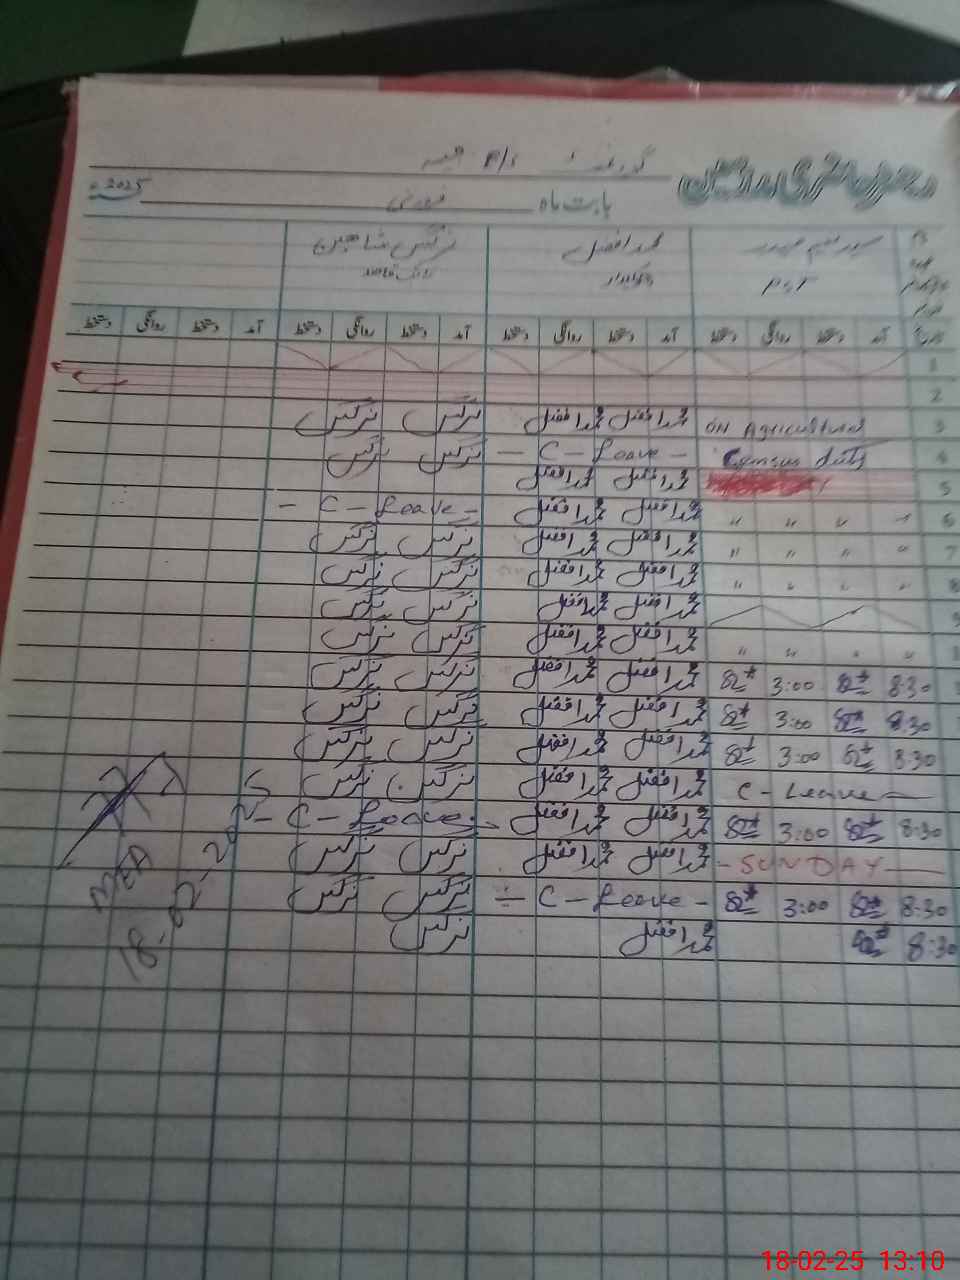 رجسٹر حاضری مدرسین
گورنمنٹ P/S
بابت ماہ فروری 2025ء
محمد افضل نرگس شاہین
PST چوکیدار
تاریخ آمد دستخط روانگی دستخط آمد دستخط روانگی دستخط آمد دستخط روانگی دستخط آمد دستخط روانگی دستخط
1
2
3 ON Agricultural محمد افضل محمد افضل نرگس نرگس
4 Census duty - C - Leave - نرگس نرگس
5 محمد افضل محمد افضل
6 " " " " محمد افضل محمد افضل - C - Leave -
7 " " " " محمد افضل محمد افضل نرگس نرگس
8 " " " " محمد افضل محمد افضل نرگس نرگس
9 محمد افضل محمد افضل نرگس نرگس
" " " " محمد افضل محمد افضل نرگس نرگس
8:30 3:00 محمد افضل محمد افضل نرگس نرگس
8:30 3:00 محمد افضل محمد افضل نرگس نرگس
8:30 3:00 محمد افضل محمد افضل نرگس نرگس
C - Leave محمد افضل محمد افضل نرگس نرگس
8:30 3:00 محمد افضل محمد افضل - C - Leave -
- SUNDAY - محمد افضل محمد افضل نرگس نرگس
8:30 3:00 - C - Leave - نرگس نرگس
8:30 محمد افضل نرگس
MEA
18-02-2025
18-02-25 13:10